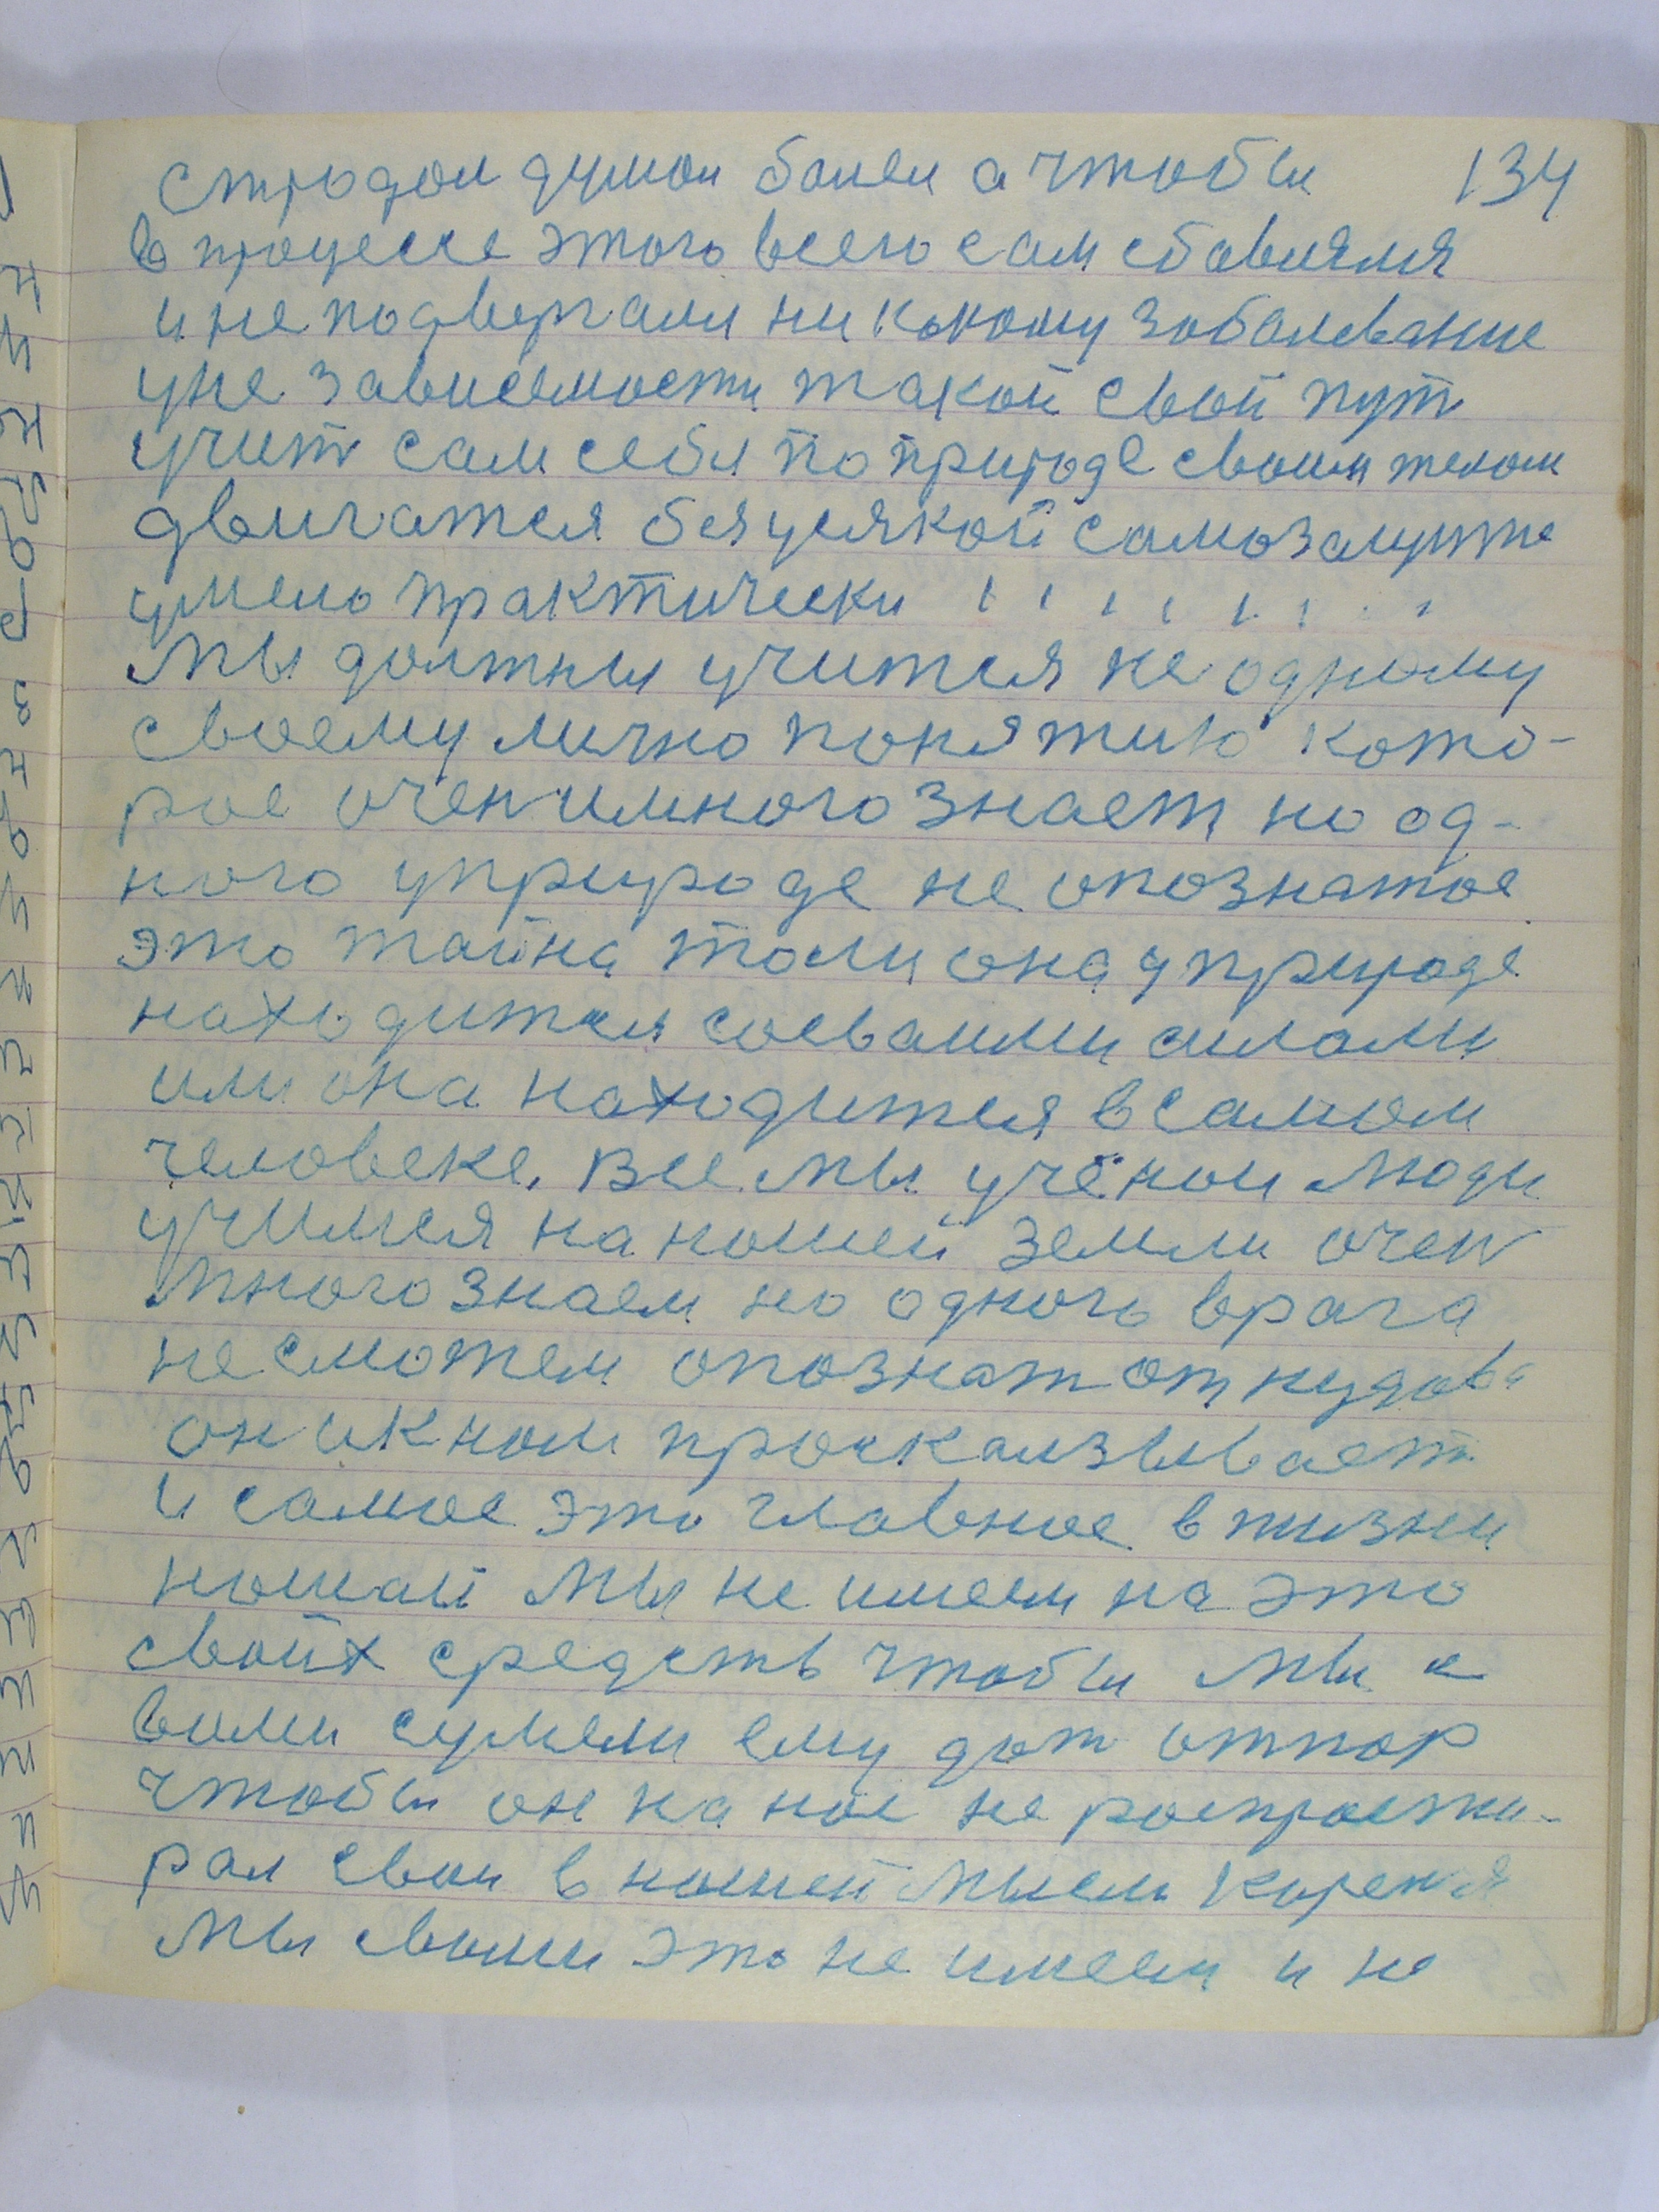 страдал думал болел а чтобы 134
в процессе этого всего сам избавлялся
и не подвергался ни какому заболевание
у не зависемости такой свой пут
учит сам себя по природе своим телом
двигатся без усякой самозащите
умело практически
Мы должны учится не одному
своему лично понятию кото-
рое очен и много знает но од-
ного у природе не опознатое
это тайна то ли она у природе
находится со своими силами
или она находится в самом
человеке. Все мы учёнои люди
учимся на нашей земли очен
много знаем но одного врага
не сможем опознат от кудова
он и к нам проскалзывает
и самое это главное в жизни
нашай мы не имеем на это
своих средств чтобы мы с
вами сумели ему дат отпор
чтобы он на нас не распрасти-
рал свои в нашей мысли кореня
мы своим это не имеем и не